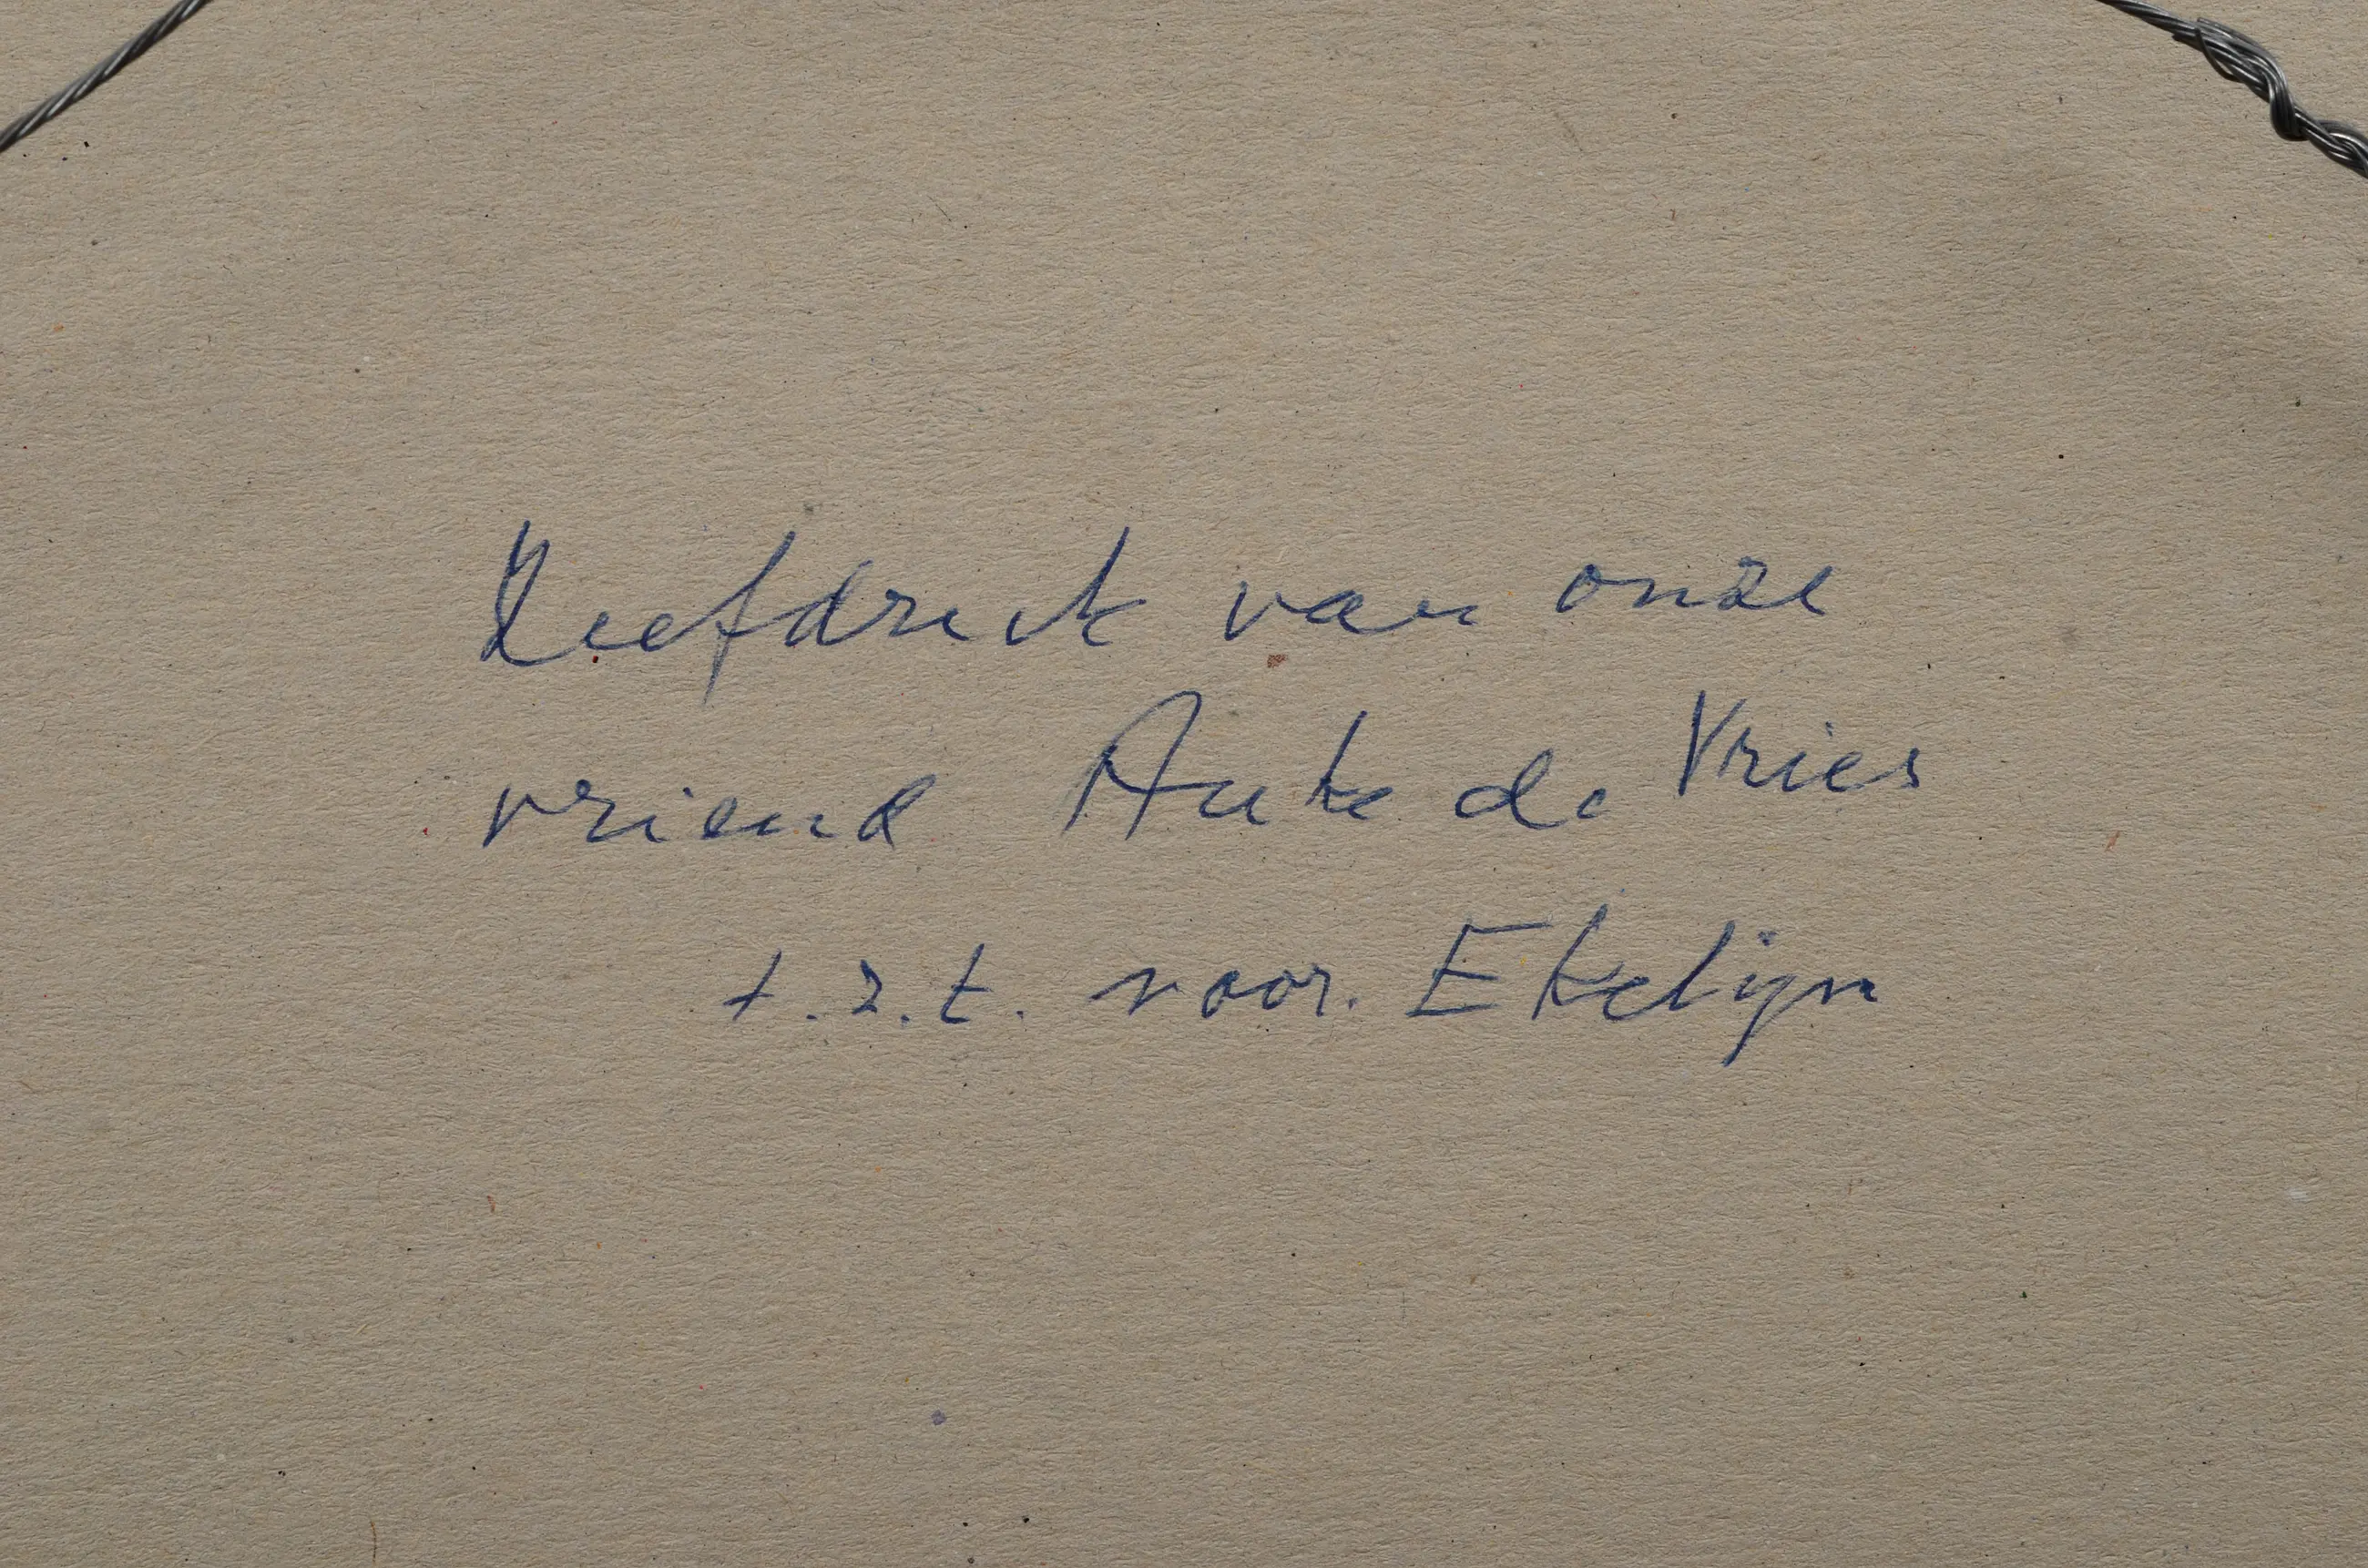 Zeefdruk van onze
vriend Auke de Vries
t.z.t. voor Ekelijn